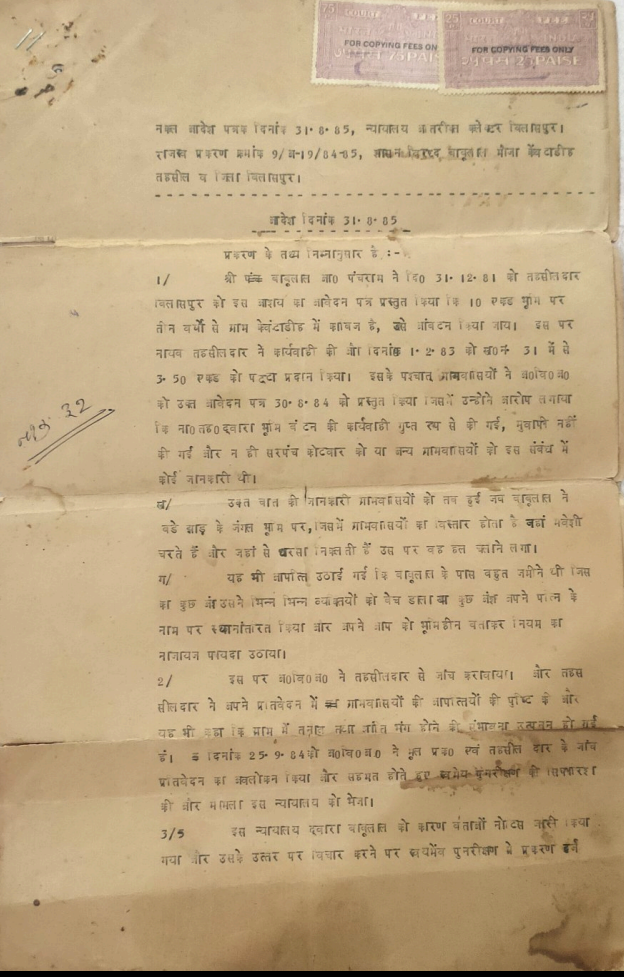 11
75 COURT
FOR COPYING FEES ON
75 PAIS
25 COURT
FOR COPYING FEES ONLY
25 PAISE
नकल आदेश पत्रक दिनांक 31.8.85, न्यायालय अतिरिक्त कलेक्टर बिलासपुर।
राजस्व प्रकरण क्रमांक 9/अ-19/84-85, शासन विरुद्ध बाबूलाल मौजा केंवटाडीह
तहसील व जिला बिलासपुर।
आदेश दिनांक 31.8.85
प्रकरण के तथ्य निम्नानुसार है :-
1/ श्री बाबूलाल आ0 पंचराम ने दि0 31.12.81 को तहसीलदार
बिलासपुर को इस आशय का आवेदन पत्र प्रस्तुत किया कि 10 एकड भूमि पर
तीन वर्षों से ग्राम केवंटाडीह में काबिज है, उसे आंबटन किया जाय। इस पर
नायब तहसीलदार ने कार्यवाही की और दिनांक 1.2.83 को ख0नं 31 में से
3.50 एकड को पट्टा प्रदान किया। इसके पश्चात् ग्रामवासियों ने अ0वि0अ0
को उक्त आवेदन पत्र 30.8.84 को प्रस्तुत किया जिसमें उन्होंने आरोप लगाया
कि ना0तह0 द्वारा भूमि बंटन की कार्यवाही गुप्त रूप से की गई, मुनादी नहीं
की गई और न ही सरपंच कोटवार को या अन्य ग्रामवासियों को इस संबंध में
कोई जानकारी थी।
ख/ उक्त बात की जानकारी ग्रामवासियों को तब हुई जब बाबूलाल ने
बडे झाड के जंगल भूमि पर, जिसमें ग्रामवासियों का निस्तार होता है जहां मवेशी
चरते हैं और जहां से धरसा निकलती हैं उस पर वह हल चलाने लगा।
ग/ यह भी आपत्ति उठाई गई कि बाबूलाल के पास बहुत जमीने थी जिस
का कुछ अंश उसने भिन्न भिन्न व्यक्तियों को बेच डाला या कुछ अंश अपने पत्नि के
नाम पर स्थानांतरित किया और अपने आप को भूमिहीन बताकर नियम का
नाजायज फायदा उठाया।
2/ इस पर अ0वि0अ0 ने तहसीलदार से जांच करावाया। और तहस
सीलदार ने अपने प्रतिवेदन में ग्रामवासियों की आपत्तियों की पुष्टि की और
यह भी कहा कि ग्राम में तनाव तथा शांति भंग होने की संभावना उत्पन्न हो गई
है। दिनांक 25.9.84 को अ0वि0अ0 ने मूल प्र0 एवं तहसील दार के जांच
प्रतिवेदन का अवलोकन किया और सहमत होते हुए स्वमेव पुनरीक्षण की सिफारिश
की और मामला इस न्यायालय को भेजा।
3/5 इस न्यायालय द्वारा बाबूलाल को कारण बताओं नोटिस जारी किया
गया और उसके उत्तर पर विचार करने पर स्वयंमेव पुनरीक्षण में प्रकरण दर्ज